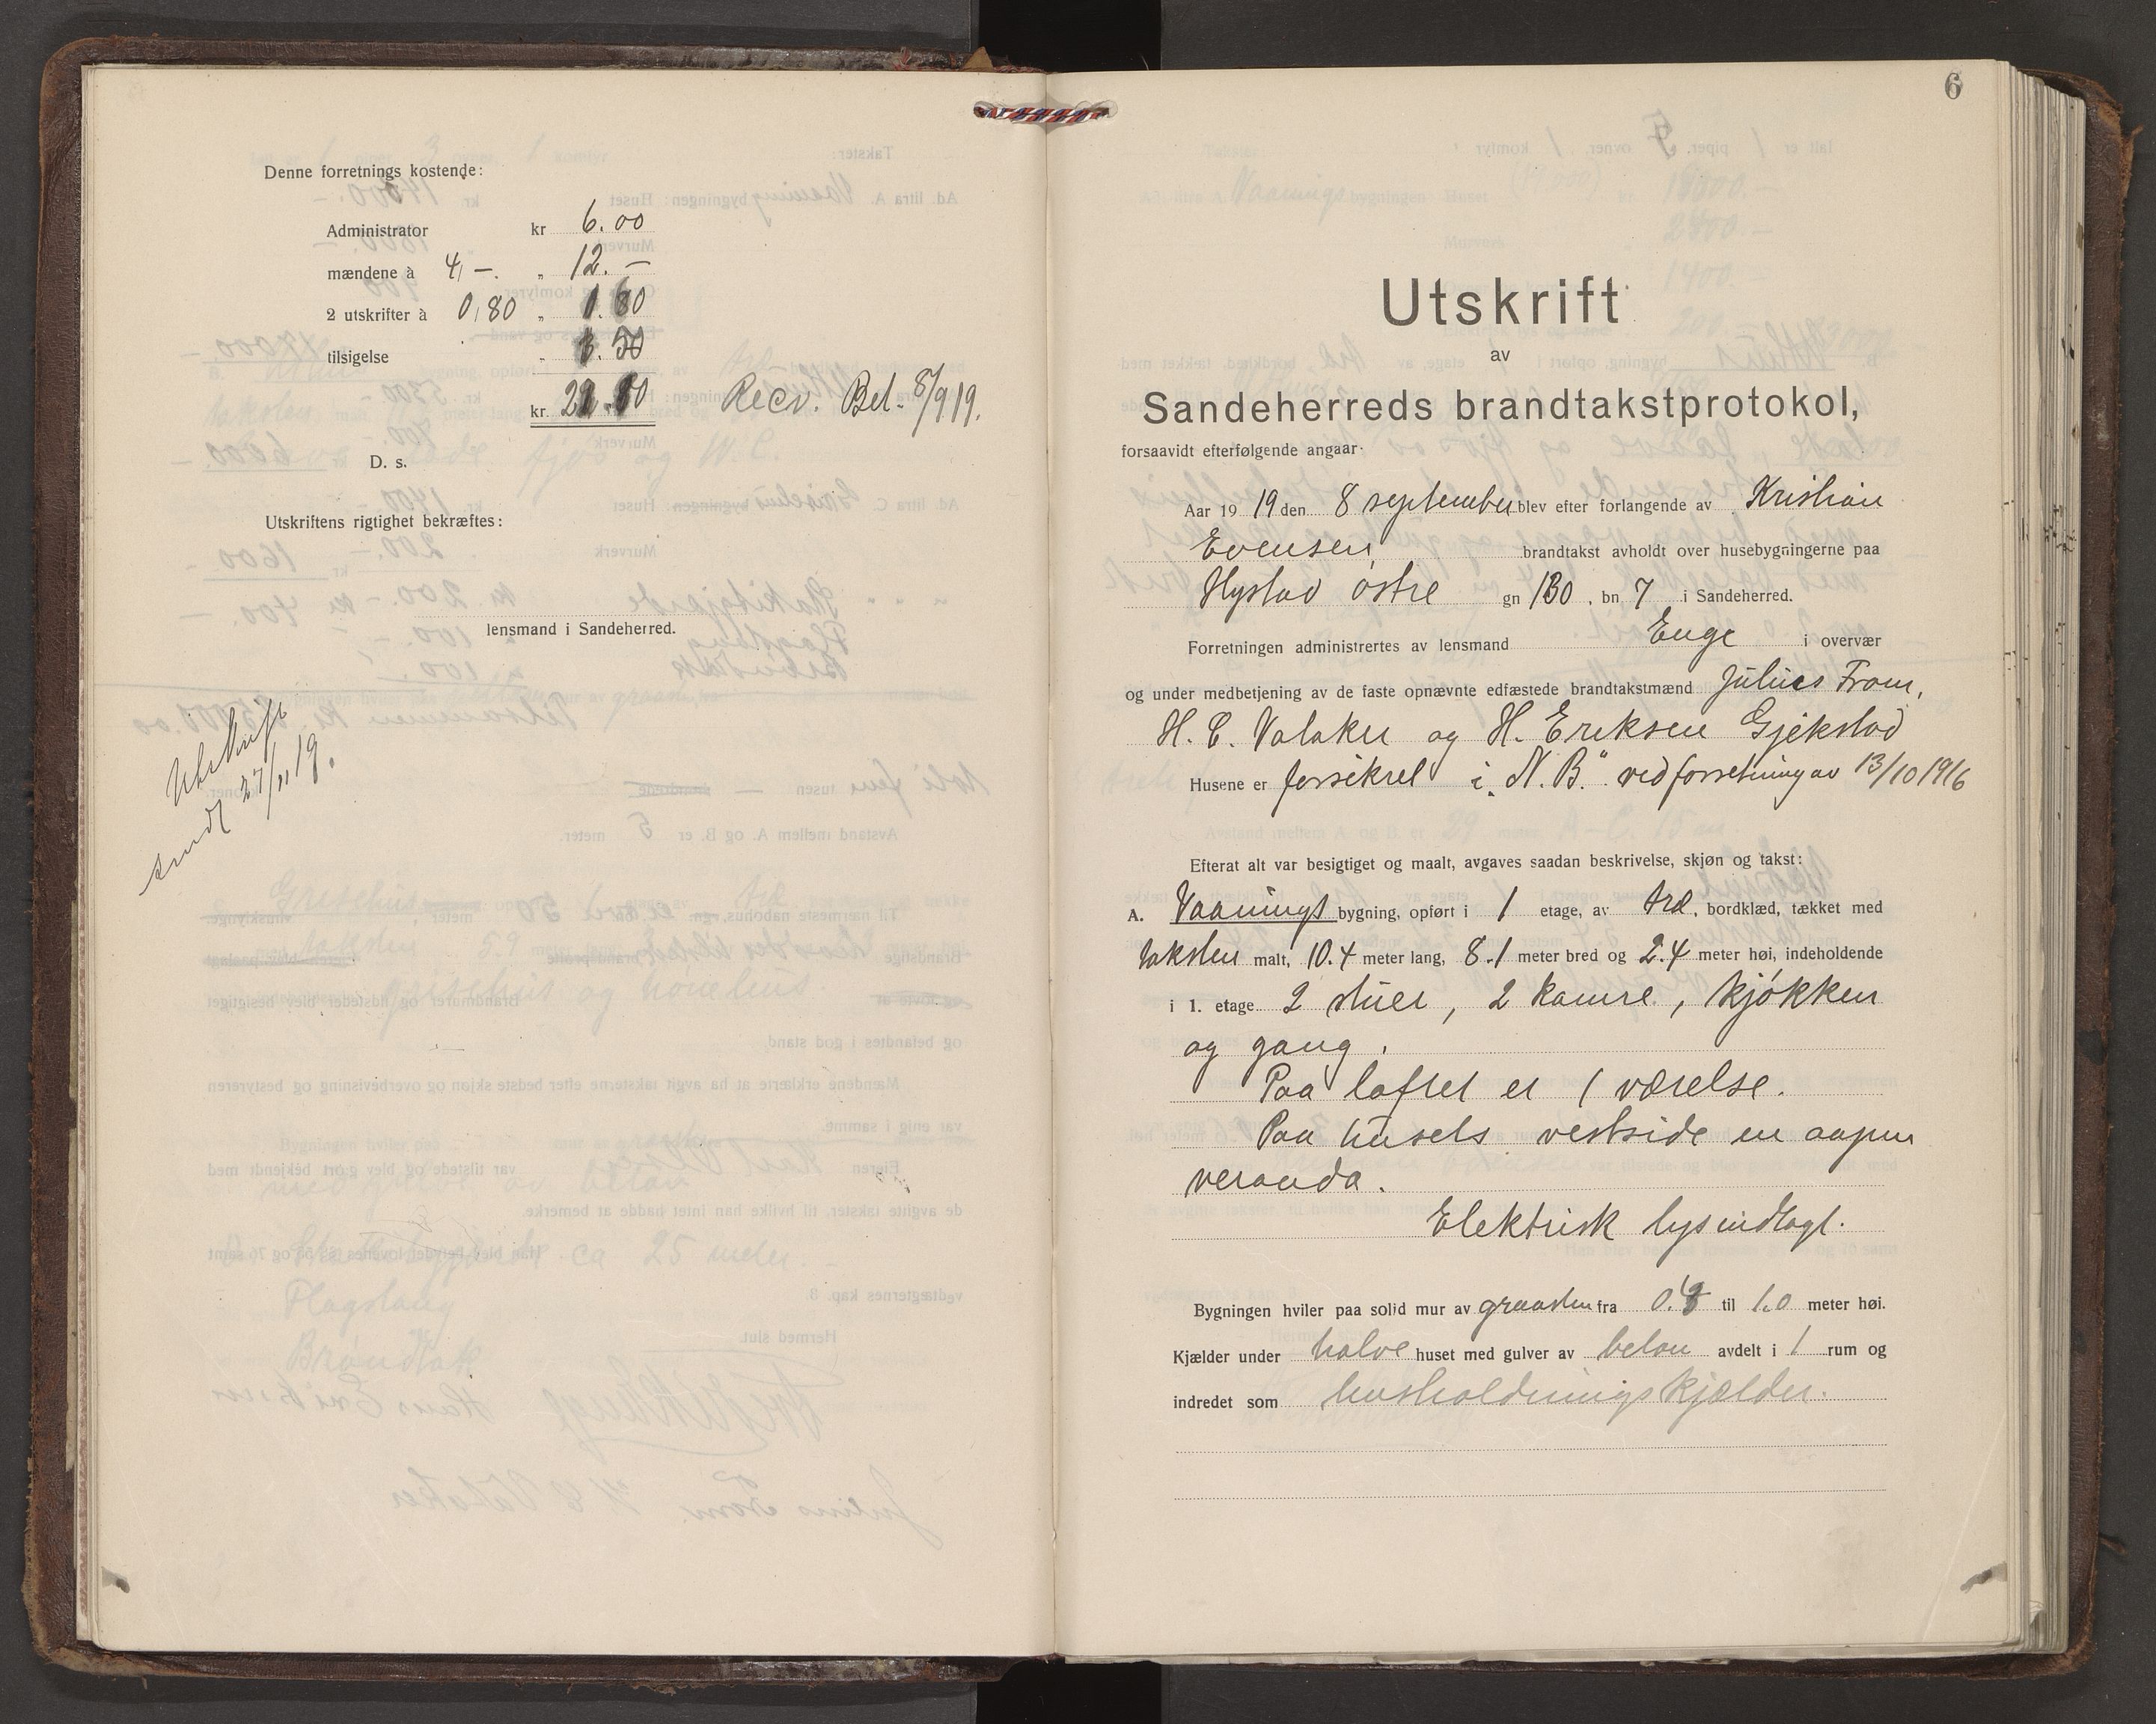 Denne forretnings kostende:
Administrator kr 6.00
mændene à 4,-. „ 12.-
2 utskrifter à 0,80 „ 1.60
tilsigelse „
kr.
Recv. Bel. 8/9 19.
D. s.
Utskriftens rigtighet bekræftes:
lensmand i Sandeherred.
Utskrift
sendt 27/11 19.
6
Utskrift
av
Sandeherreds brandtakstprotokol,
forsaavidt efterfølgende angaar.
Aar 19 19 den 8 september blev efter forlangende av Kristian
Evensen brandtakst avholdt over husebygningerne paa
Hystad østre gn 130, bn 7 i Sandeherred.
Forretningen administrertes av lensmand Enge i overvær
og under medbetjening av de faste opnævnte edfæstede brandtakstmænd Julius From,
H. C. Valaker og H. Eriksen Gjekstad
Husene er forsikret i „N. B." ved forretning av 13/10 1916
Efterat alt var besigtiget og maalt, avgaves saadan beskrivelse, skjøn og takst:
A. Vaanings bygning, opført i 1 etage, av træ, bordklæd, tækket med
taksten malt, 10.4 meter lang, 8.1 meter bred og 2.4 meter høi, indeholdende
i 1. etage 2 stuer, 2 kamre, kjøkken
og gang.
Paa loftet er 1 værelse.
Paa husets vestside en aapen
veranda.
Elektrisk lys indlagt.
Bygningen hviler paa solid mur av graasten fra til 1.0 meter høi.
Kjælder under halve huset med gulver av beton avdelt i 1 rum og
indredet som husholdningskjælder.